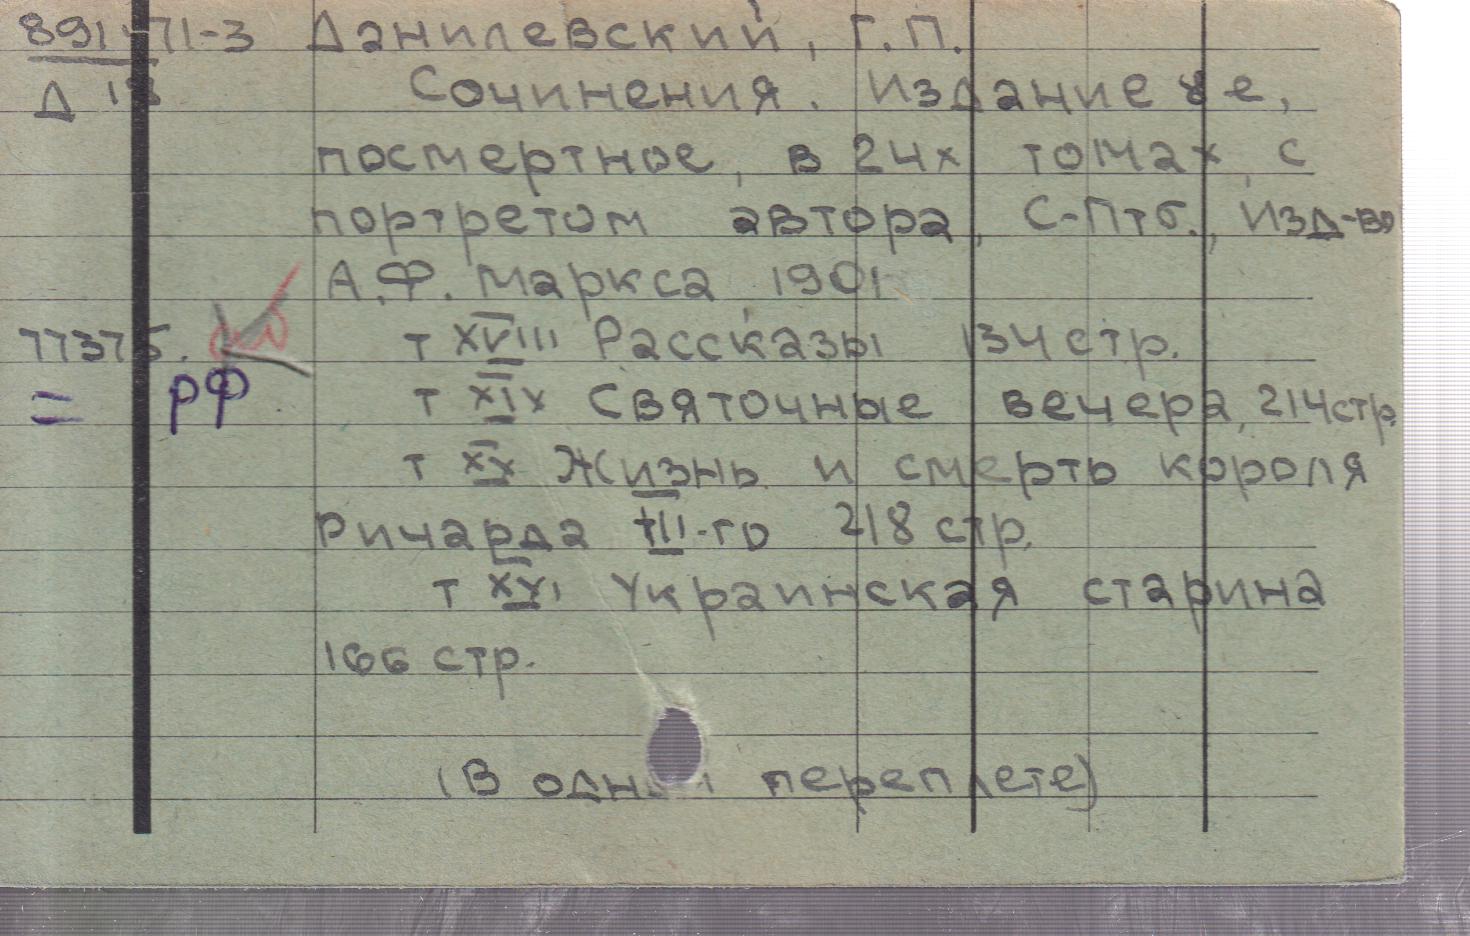 891-71-3 Данилевский, Г.П.
Д 18 Сочинения. Издание 8е,
посмертное, в 24х томах, с
портретом автора, С-Птб., Изд-во
А.Ф. Маркса, 1901
77375. т XVIII Рассказы 134 стр.
= РФ т XIX Святочные вечера, 214 стр.
т XX Жизнь и смерть короля
Ричарда III-го 218 стр.
т XXI Украинская старина
166 стр.
(В одном переплете)